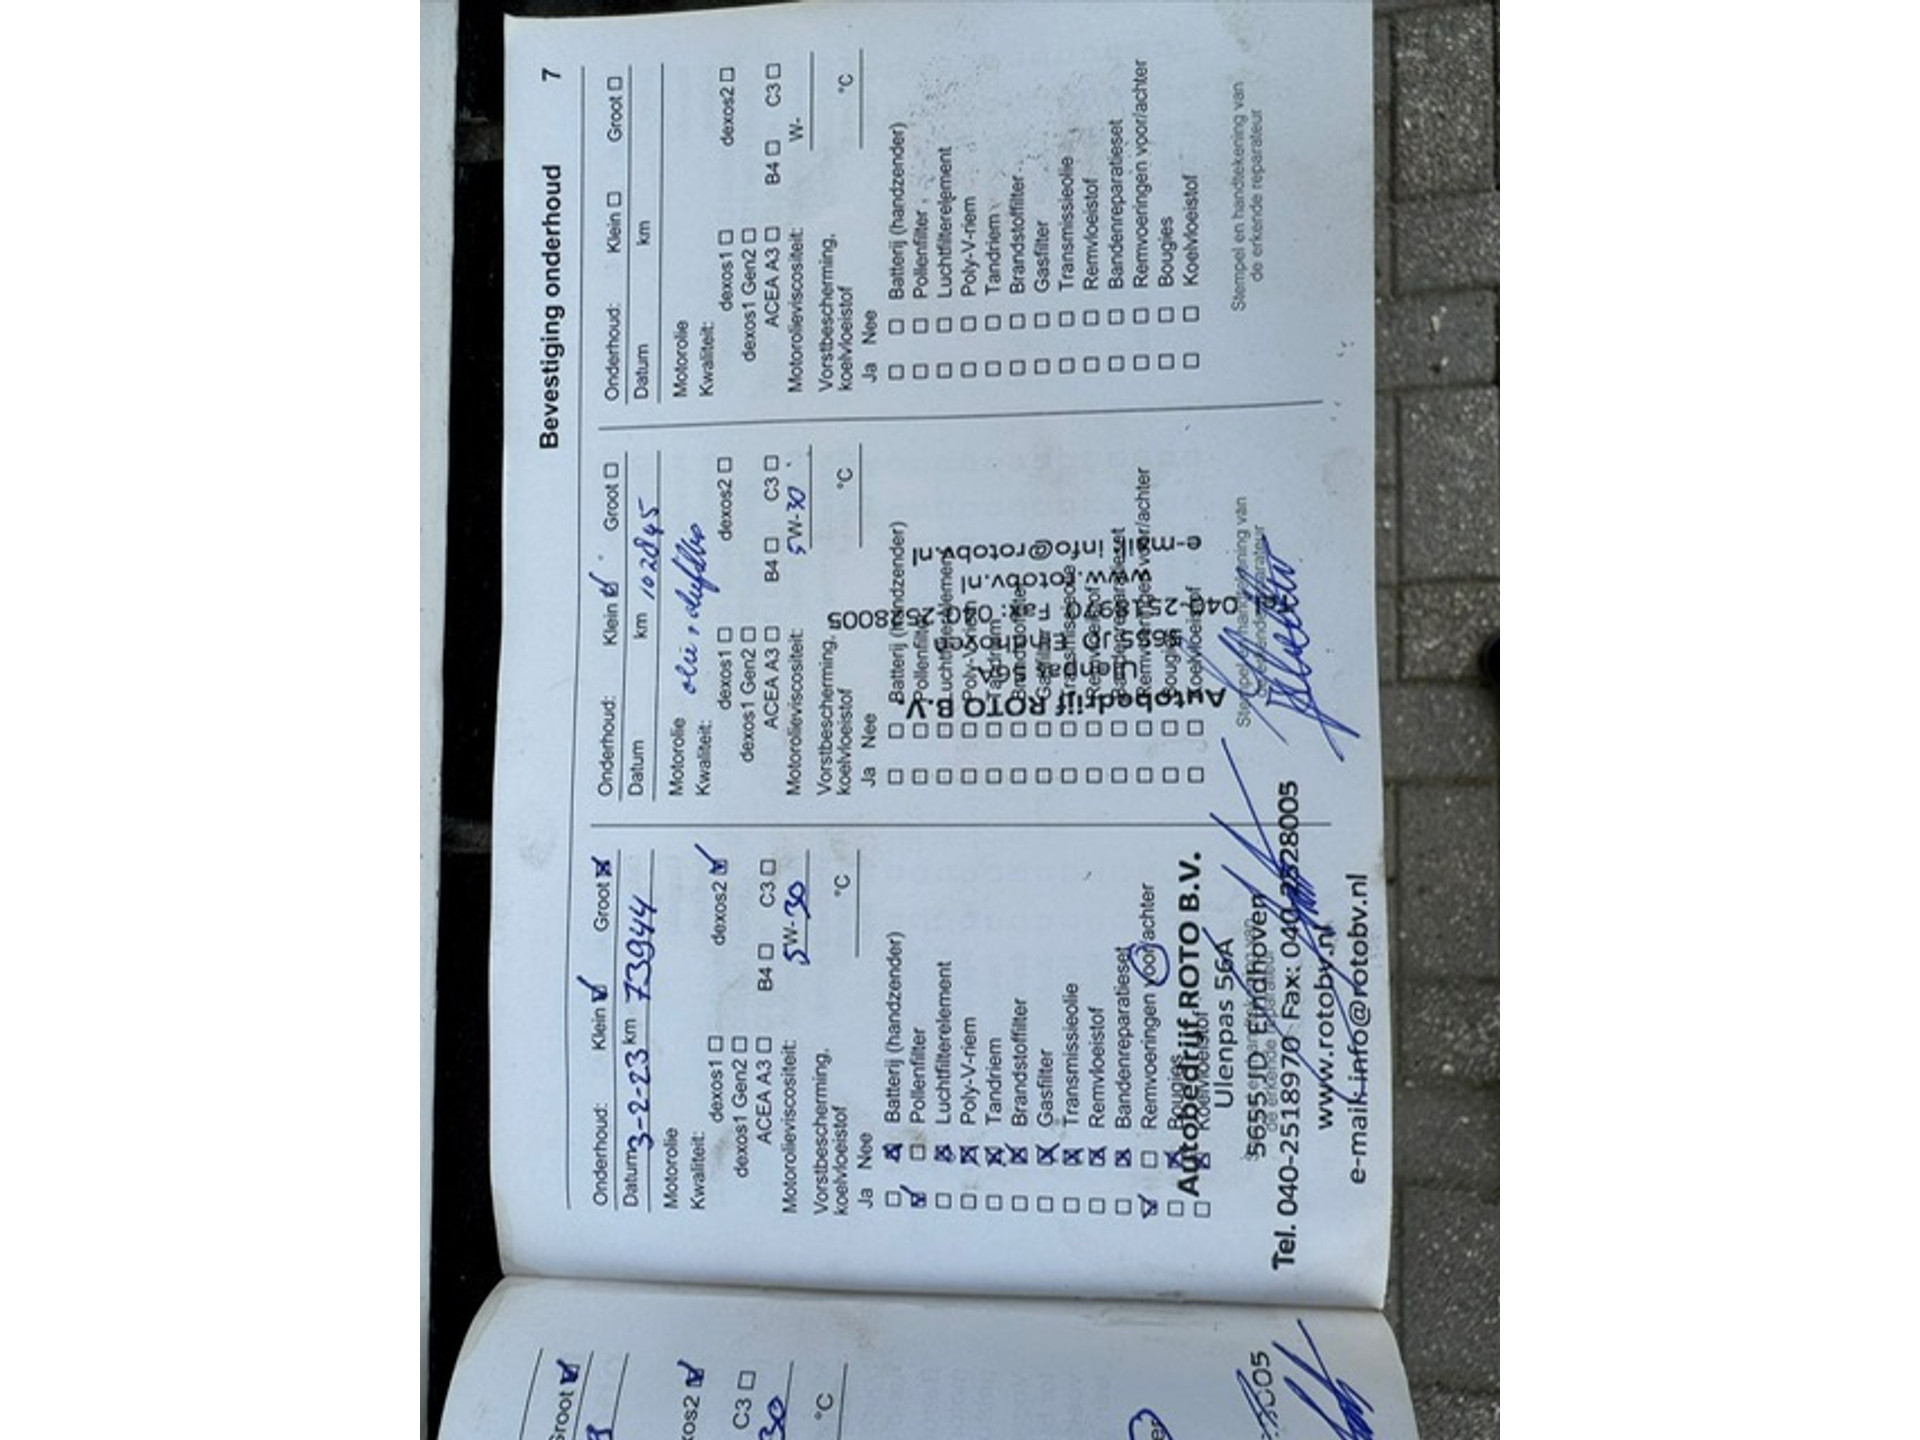 Bevestiging onderhoud 7
Onderhoud: Klein ☑ Groot ☒
Datum 3-2-23 km 73944
Motorolie
Kwaliteit:
dexos1 ☐ dexos2 ☑
dexos1 Gen2 ☐
ACEA A3 ☐ B4 ☐ C3 ☐
Motorolieviscositeit: 5W-30
Vorstbescherming,
koelvloeistof °C
Ja Nee
☐ ☒ Batterij (handzender)
☑ ☐ Pollenfilter
☐ ☒ Luchtfilterelement
☐ ☒ Poly-V-riem
☐ ☒ Tandriem
☐ ☒ Brandstoffilter
☐ ☒ Gasfilter
☐ ☒ Transmissieolie
☐ ☒ Remvloeistof
☐ ☒ Bandenreparatieset
☑ ☐ Remvoeringen voor/achter
☐ ☒ Bougies
☐ ☒ Koelvloeistof
Autobedrijf ROTO B.V.
Ulenpas 56A
5655 JD Eindhoven
Tel. 040-2518970 Fax: 040-2528005
www.rotobv.nl
e-mail: info@rotobv.nl
Onderhoud: Klein ☑ Groot ☐
Datum km 102845
Motorolie olie +
Kwaliteit:
dexos1 ☐ dexos2 ☐
dexos1 Gen2 ☐
ACEA A3 ☐ B4 ☐ C3 ☐
Motorolieviscositeit: 5W-30
Vorstbescherming,
koelvloeistof °C
Ja Nee
☐ ☐ Batterij (handzender)
☐ ☐ Pollenfilter
☐ ☐ Luchtfilterelement
☐ ☐ Poly-V-riem
☐ ☐ Tandriem
☐ ☐ Brandstoffilter
☐ ☐ Gasfilter
☐ ☐ Transmissieolie
☐ ☐ Remvloeistof
☐ ☐ Bandenreparatieset
☐ ☐ Remvoeringen voor/achter
☐ ☐ Bougies
☐ ☐ Koelvloeistof
Autobedrijf ROTO B.V.
Ulenpas 56A
5655 JD Eindhoven
040-2518970 Fax: 040-2528005
www.rotobv.nl
e-mail info@rotobv.nl
Stempel en handtekening van
de erkende reparateur
Onderhoud: Klein ☐ Groot ☐
Datum km
Motorolie
Kwaliteit:
dexos1 ☐ dexos2 ☐
dexos1 Gen2 ☐
ACEA A3 ☐ B4 ☐ C3 ☐
Motorolieviscositeit: W-
Vorstbescherming,
koelvloeistof °C
Ja Nee
☐ ☐ Batterij (handzender)
☐ ☐ Pollenfilter
☐ ☐ Luchtfilterelement
☐ ☐ Poly-V-riem
☐ ☐ Tandriem
☐ ☐ Brandstoffilter
☐ ☐ Gasfilter
☐ ☐ Transmissieolie
☐ ☐ Remvloeistof
☐ ☐ Bandenreparatieset
☐ ☐ Remvoeringen voor/achter
☐ ☐ Bougies
☐ ☐ Koelvloeistof
Stempel en handtekening van
de erkende reparateur
Groot ☑
C3 ☐
30
°C